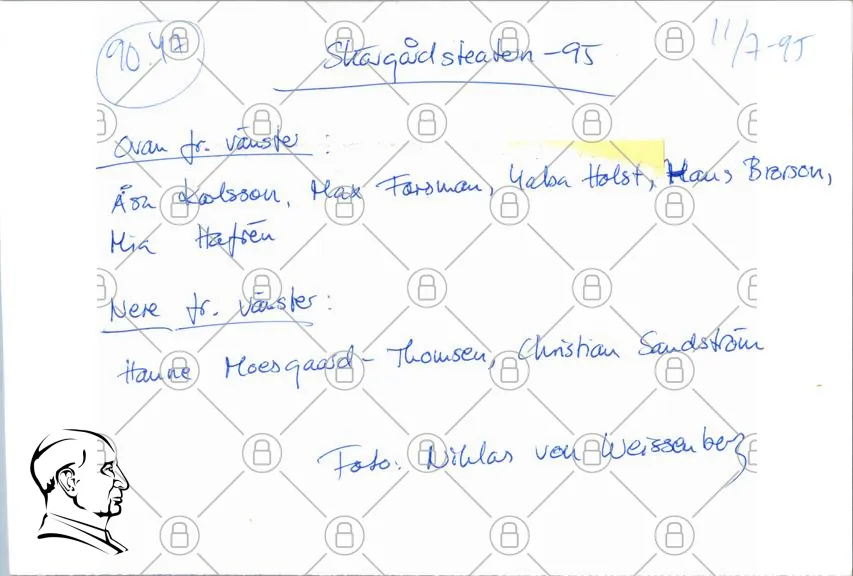 90.47
Skärgårdsteatern -95
11/7-95
Ovan fr. vänster:
Åsa Karlsson, Max Forsman, Holst, Hans Brorson,
Mia Hafrén
Nere fr. vänster:
Hanne Moesgaard-Thomsen, Christian Sandström
Foto: Niklas von Weissenberg